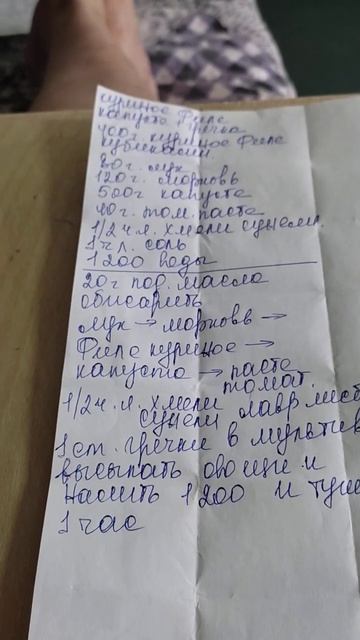 куриное Филе
капуста, гречка
400г. куриное Филе
кубиками.
80г. лук
120г. морковь
500г капусте
40г. том. пасте
1/2 ч.л. хмели сунели.
1 ч.л. соль
1200 воды
20г под. масло
обжарить
лук → морковь →
Филе куриное →
капуста → пасте
томат.
1/2 ч.л. хмели
сунели лавр лист
1 ст. гречки в мультив
высыпать овощи и
налить 1200 и туши
1 час